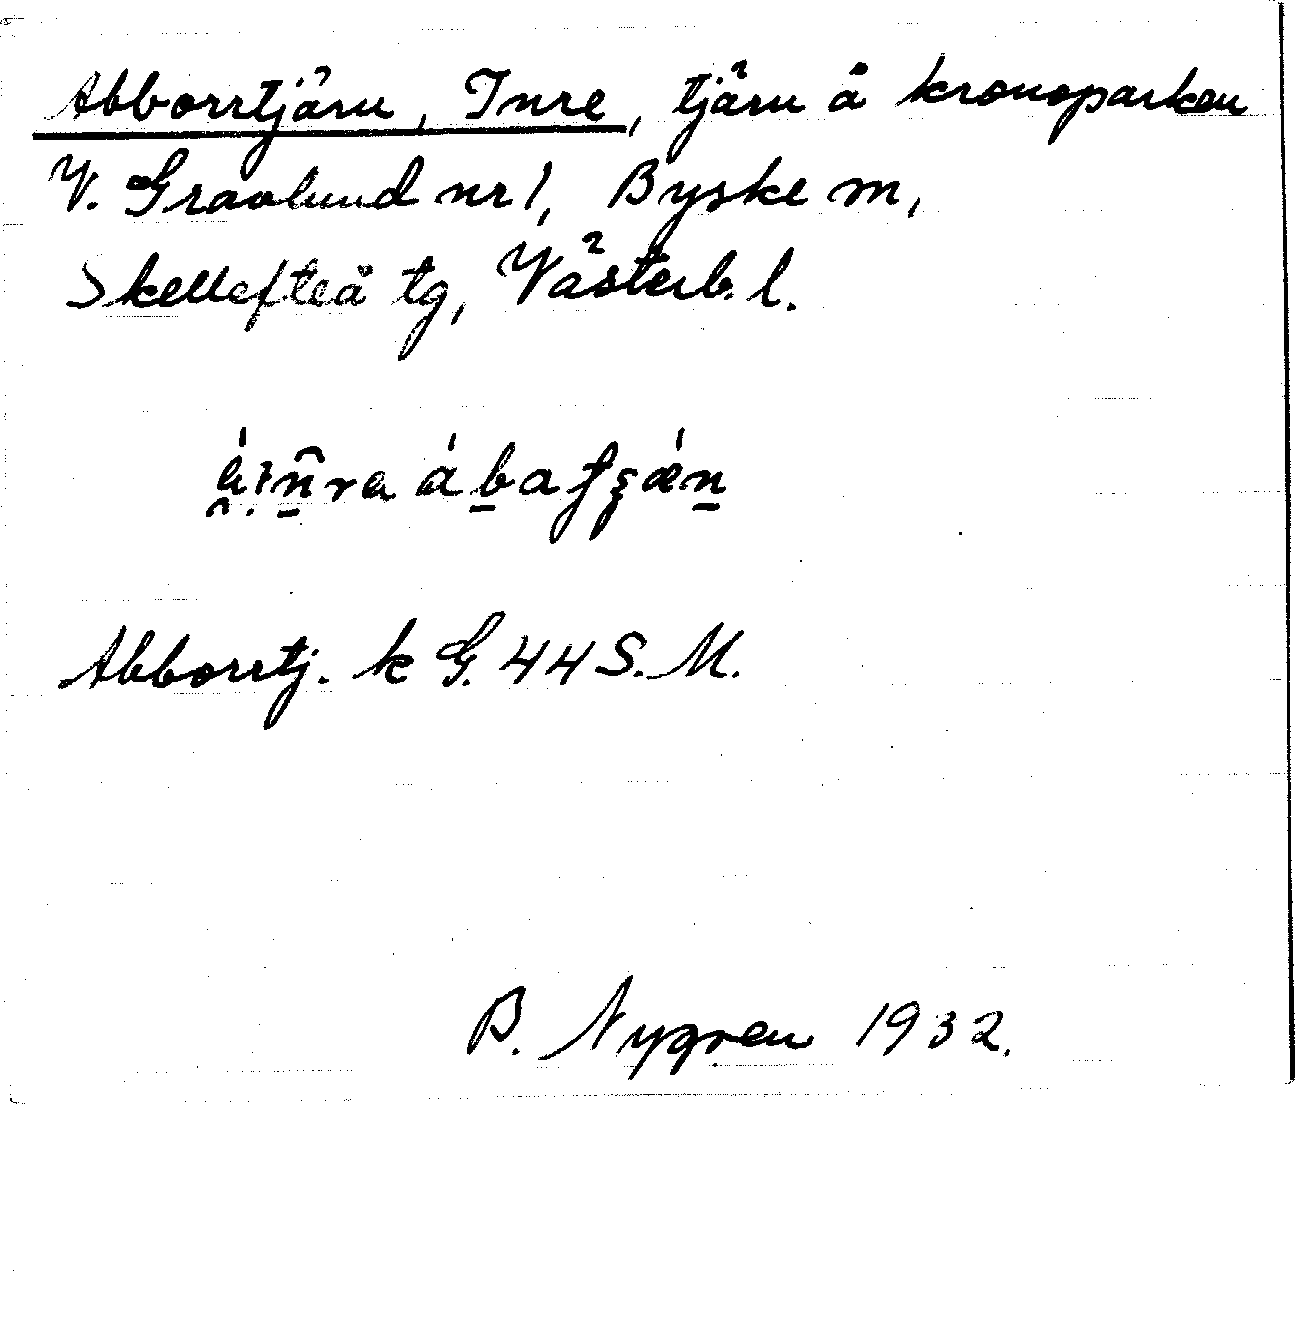 Abborrtjärn, Inre, tjärn å kronoparken
V. Granlund nr 1, Byske sn,
Skellefteå tg, Västerb. l.
Abborrtj. k G. 44 S. M.
B. Nygren 1932.